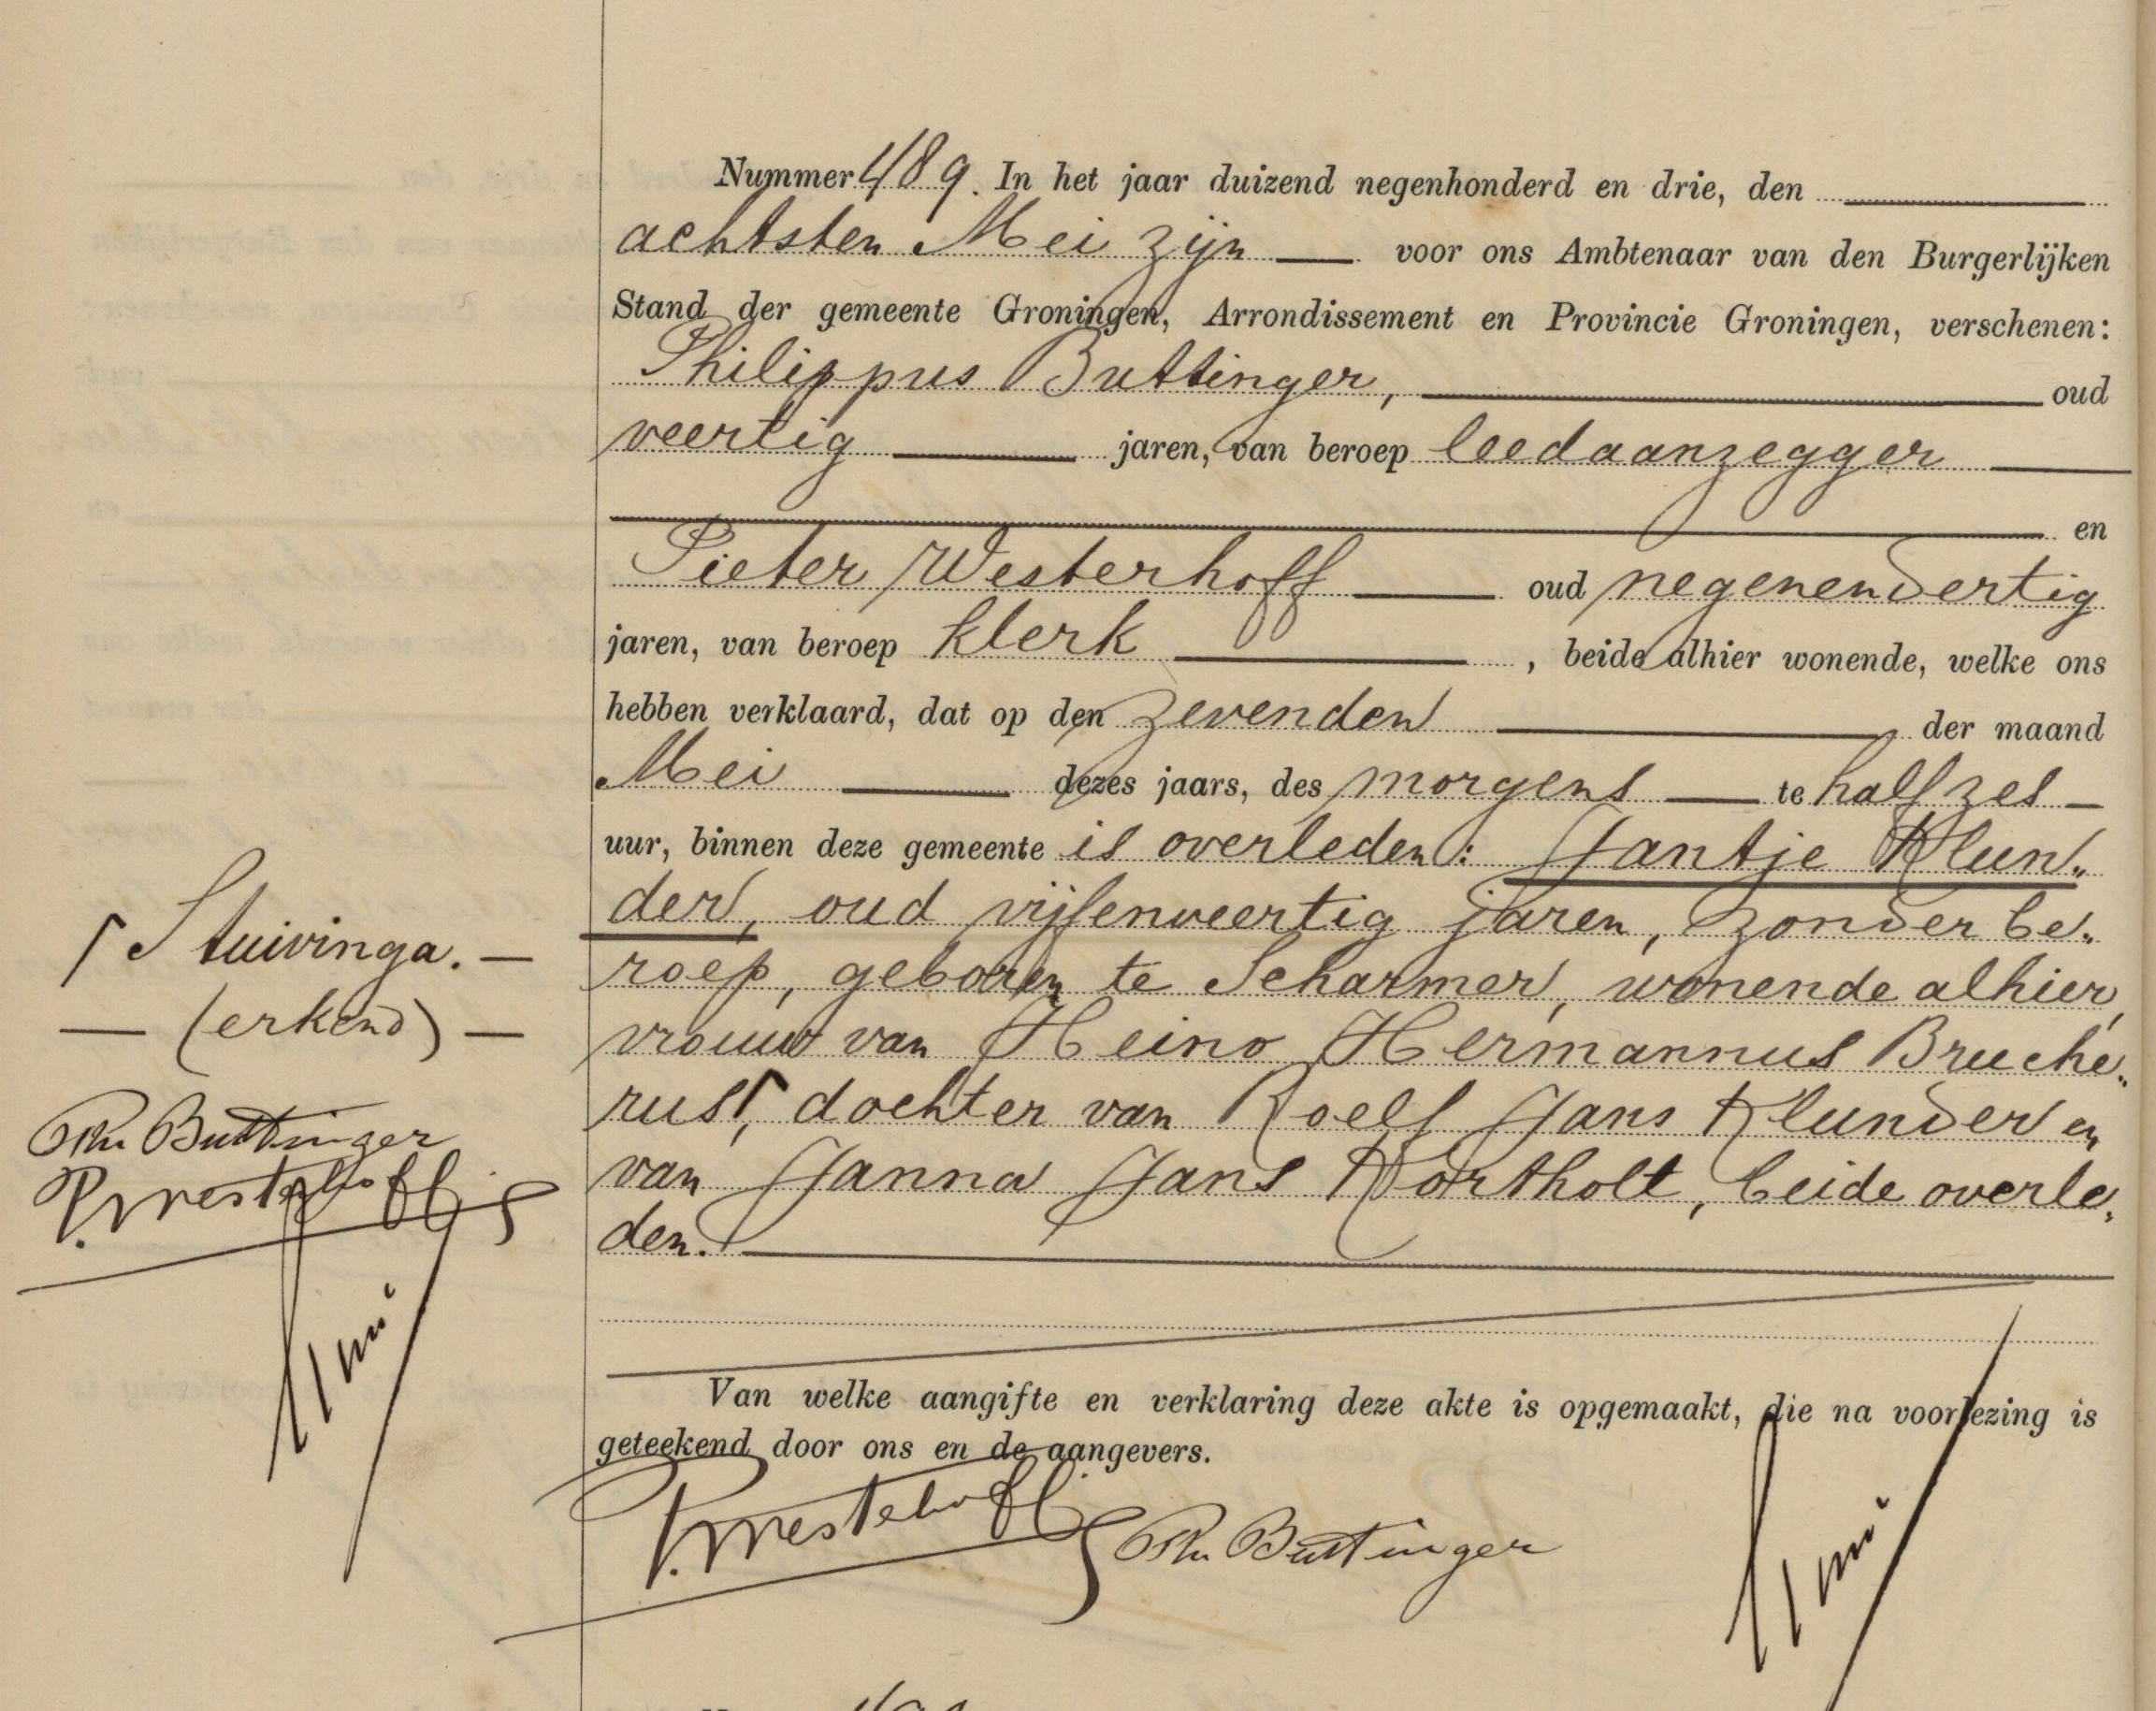 Nummer 489. In het jaar duizend negenhonderd en drie, den
achtsten Mei zijn voor ons Ambtenaar van den Burgerlijken
Stand der gemeente Groningen, Arrondissement en Provincie Groningen, verschenen:
Philippus Buttinger, oud
veertig jaren, van beroep leedaanzegger
en
Pieter Westerhoff oud negenendertig
jaren, van beroep klerk , beide alhier wonende, welke ons
hebben verklaard, dat op den zevenden der maand
Mei dezes jaars, des morgens te half zes
uur, binnen deze gemeente is overleden: Jantje Klun„
der, oud vijfenveertig jaren, zonder be„
roep, geboren te Scharmer, wonende alhier,
vrouw van Heino Hermannus Bruché„
rus⌈, dochter van Roelf Jans Klunder en
van Janna Jans Kortholt, beide overle„
den.
⌈ Stuivinga. —
— (erkend) —
Ph. Buttinger
P. Westerhoff
Van welke aangifte en verklaring deze akte is opgemaakt, die na voorlezing is
geteekend door ons en de aangevers.
P. Westerhoff Ph. Buttinger